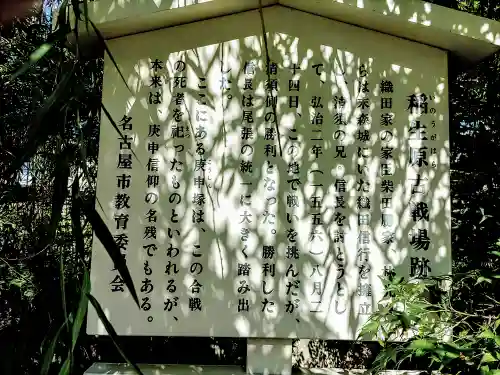 稲生原古戦場跡
いのうがはら
織田家の家臣柴田勝家、林
らは末森城にいた織田信行を擁立
し、清須の兄・信長を討とうとし
て、弘治二年（一五五六）八月二
十四日、この地で戦いを挑んだが、
清須側の勝利となった。勝利した
信長は尾張の統一に大きく踏み出
した。
ここにある庚申塚は、この合戦
の死者を祀ったものといわれるが、
本来は、庚申信仰の名残でもある。
名古屋市教育委員会